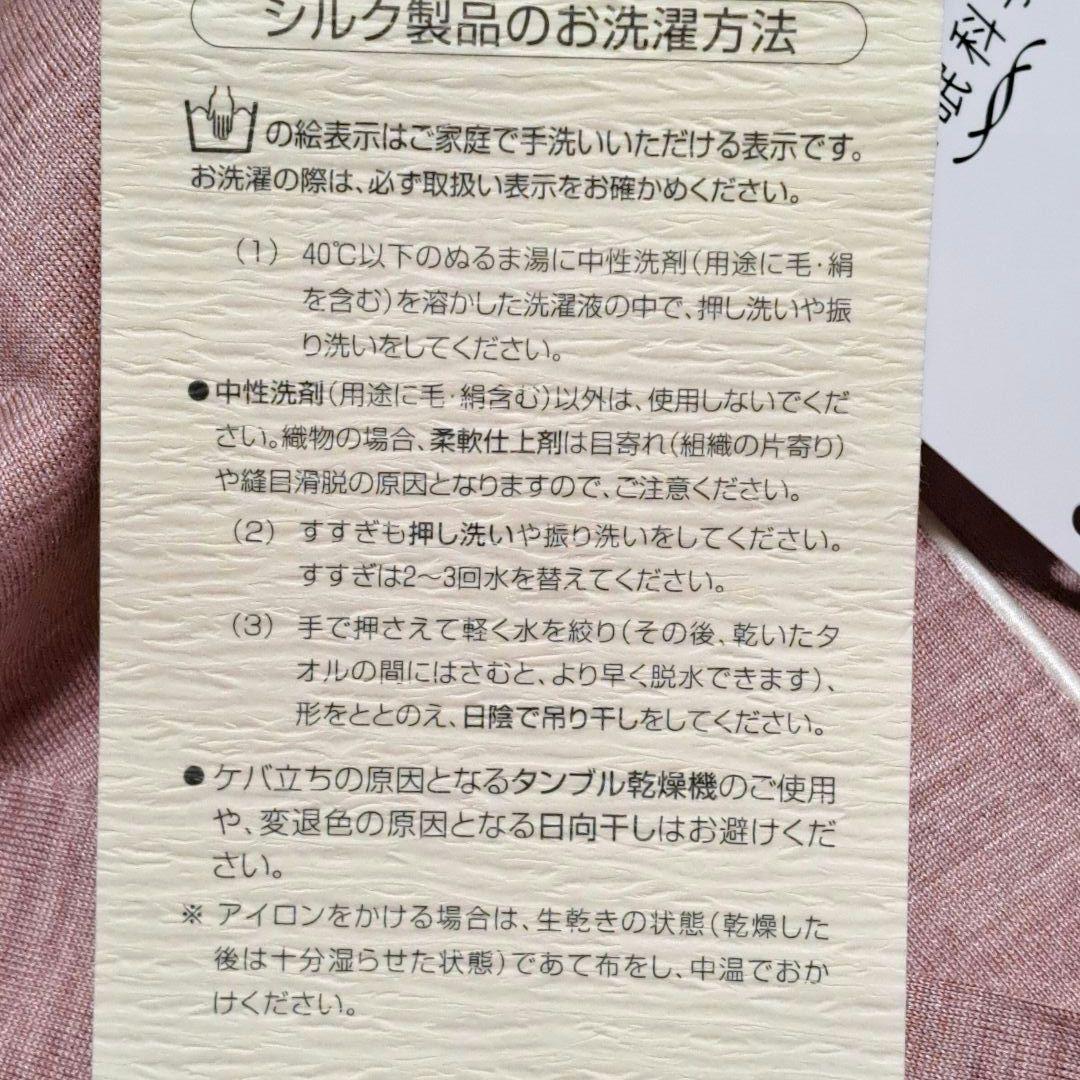 シルク製品のお洗濯方法
の絵表示はご家庭で手洗いいただける表示です。
お洗濯の際は、必ず取扱い表示をお確かめください。
(1) 40℃以下のぬるま湯に中性洗剤(用途に毛·絹
を含む)を溶かした洗濯液の中で、押し洗いや振
り洗いをしてください。
●中性洗剤(用途に毛·絹含む)以外は、使用しないでくだ
さい。織物の場合、柔軟仕上剤は目寄れ(組織の片寄り)
や縫目滑脱の原因となりますので、ご注意ください。
(2) すすぎも押し洗いや振り洗いをしてください。
すすぎは2〜3回水を替えてください。
(3) 手で押さえて軽く水を絞り(その後、乾いたタ
オルの間にはさむと、より早く脱水できます)、
形をととのえ、日陰で吊り干しをしてください。
●ケバ立ちの原因となるタンブル乾燥機のご使用
や、変退色の原因となる日向干しはお避けくだ
さい。
※ アイロンをかける場合は、生乾きの状態(乾燥した
後は十分湿らせた状態)であて布をし、中温でおか
けください。
科